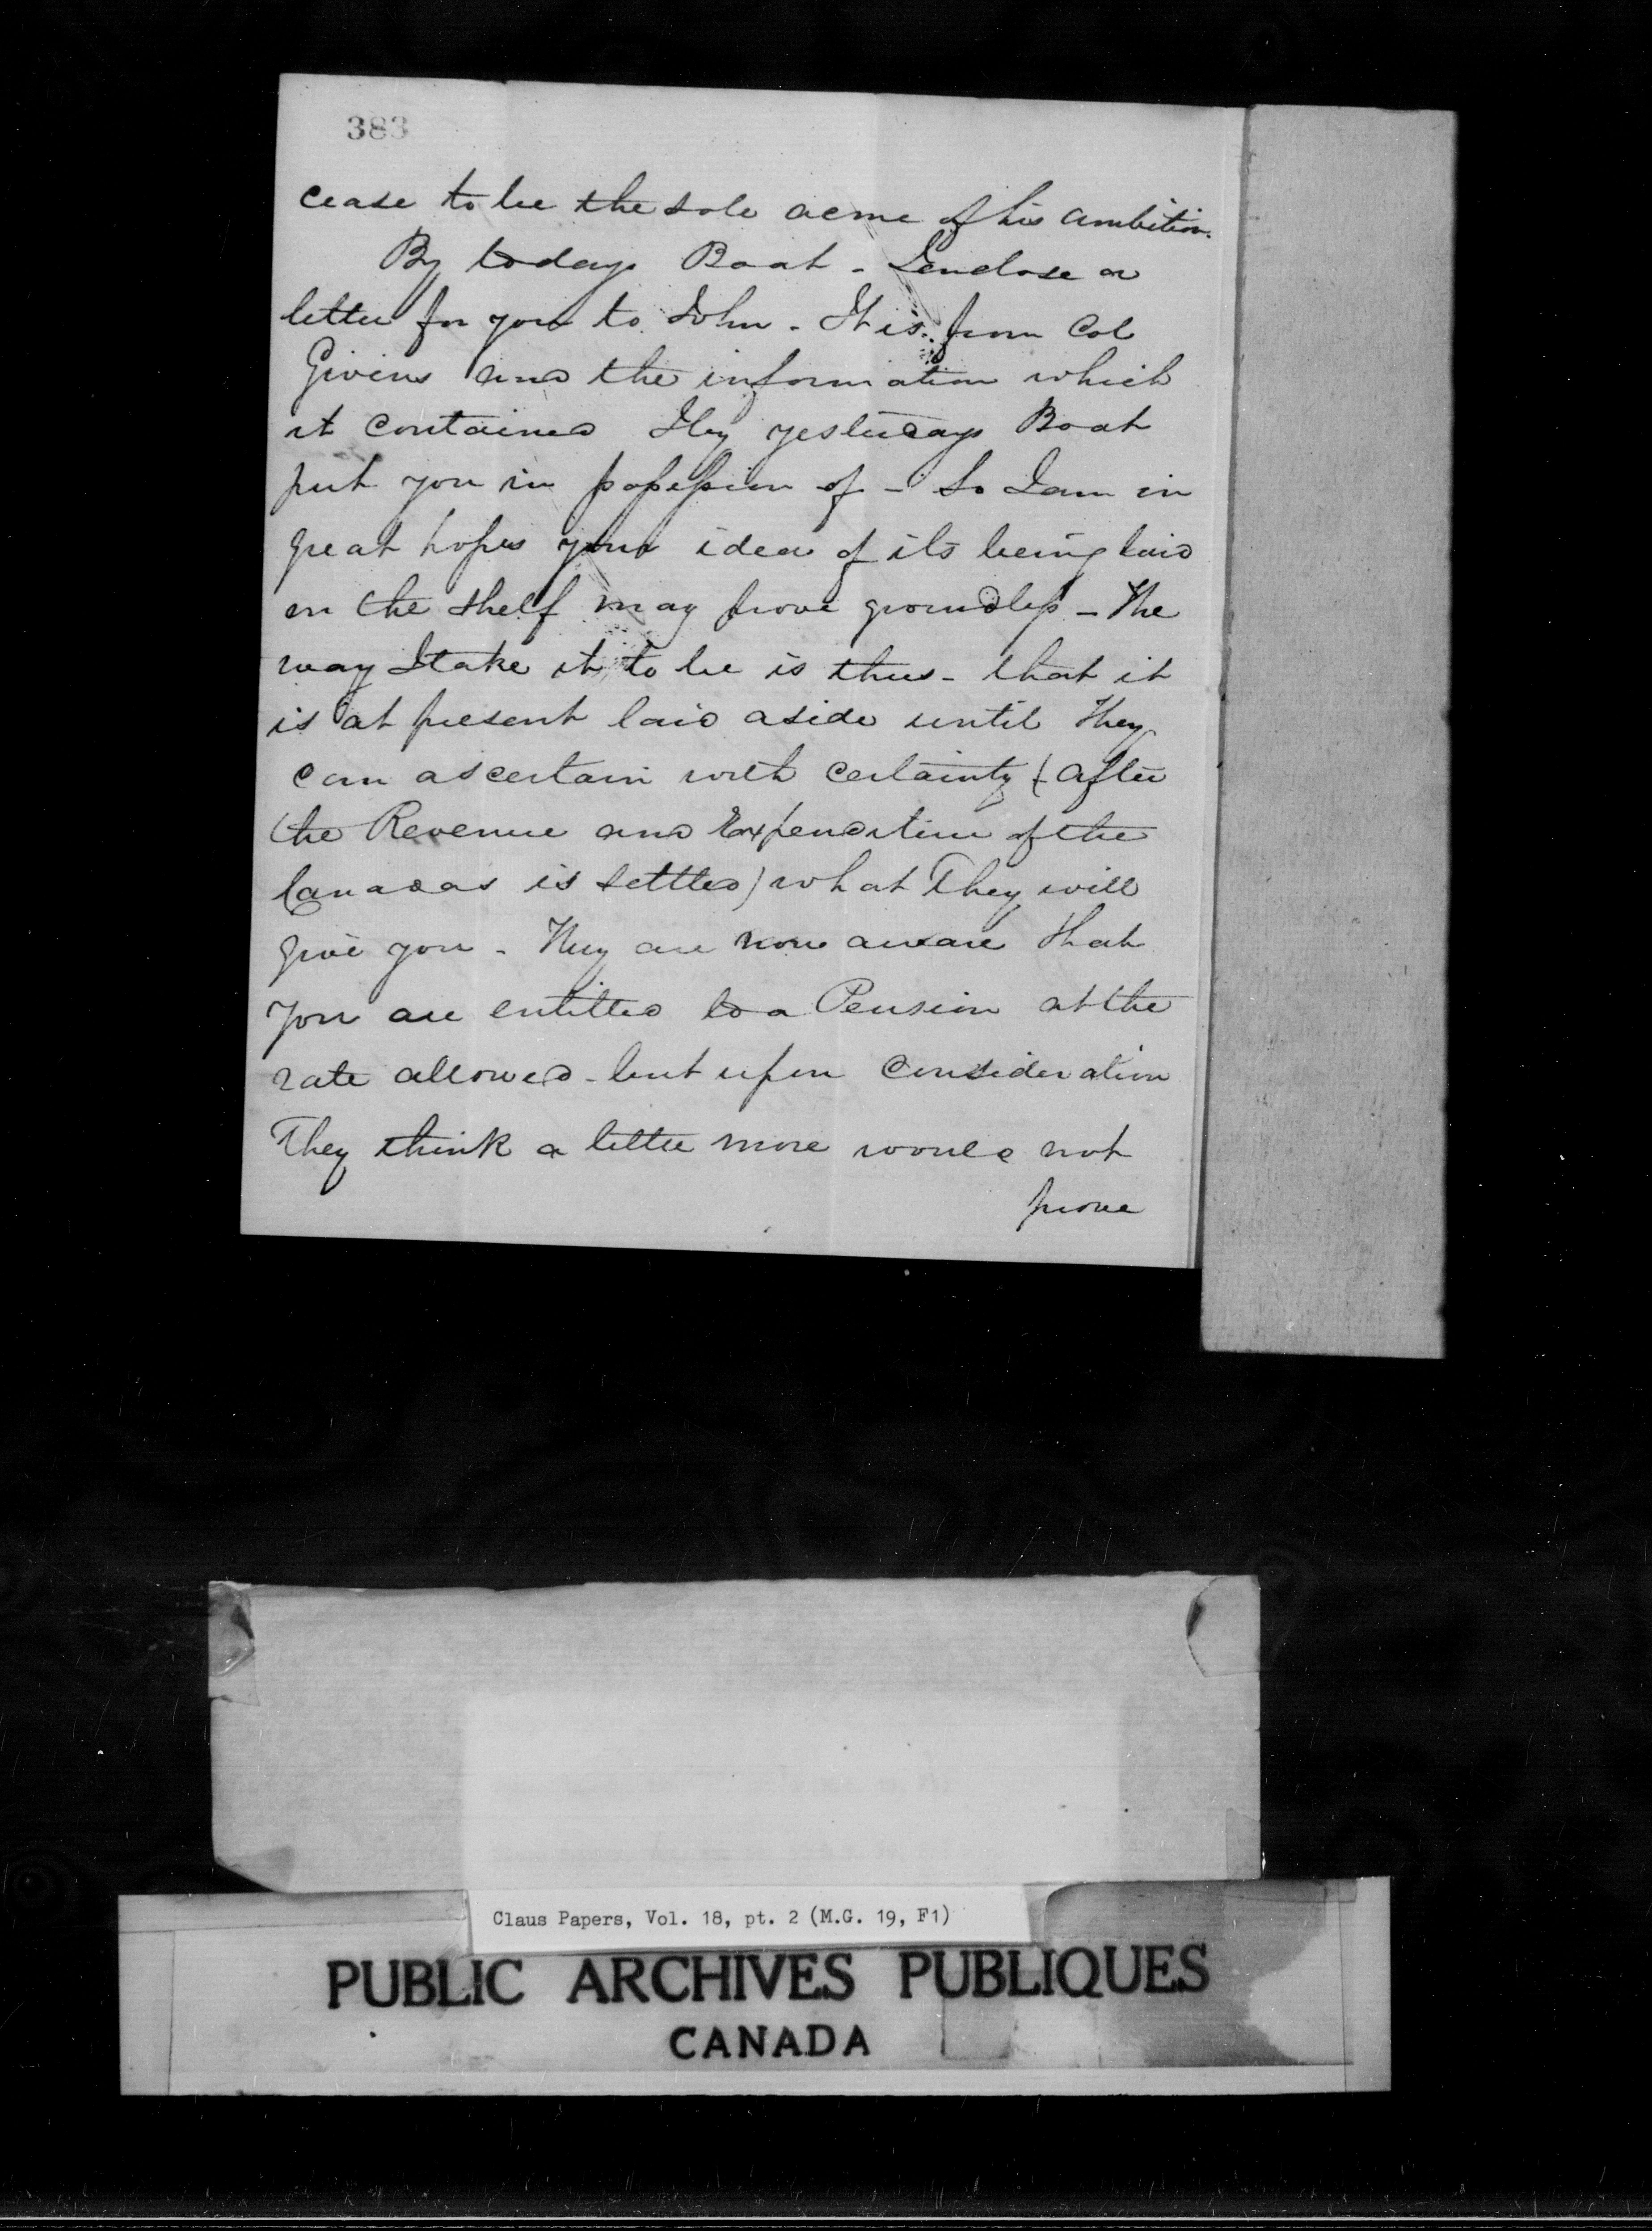 383
cease to be the sole acme of his ambition.
By todays Boat - I enclose a
letter for you to John - It is from Col
Givins and the information which
it contained I by yesterdays Boat
put you in possession of - So I am in
great hopes your idea of its being laid
on the shelf may prove groundless - The
way I take it to be is thus - that it
is at present laid aside until they
can ascertain with certainty (after
the Revenue and Expenditure of the
Canadas is settled) what They will
give you - They are now aware that
you are entitled to a Pension at the
rate allowed - but upon consideration
They think a little more would not
prove
Claus Papers, Vol. 18, pt. 2 (M.G. 19, F1)
PUBLIC ARCHIVES PUBLIQUES
CANADA